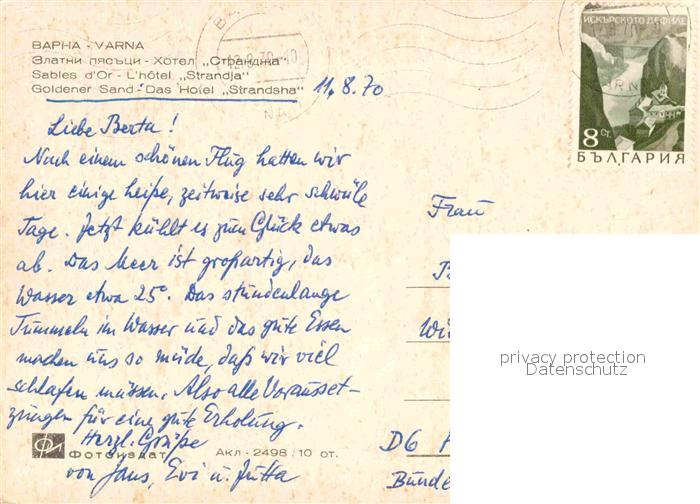 ВАРНА - VARNA
Златни пясъци - Хотел „Странджа“
Sables d'Or - L'hôtel „Strandja“
Goldener Sand - Das Hotel „Strandsha“
11.8.70
Liebe Berta!
Nach einem schönen Flug hatten wir
hier einige heiße, zeitweise sehr schwüle
Tage. Jetzt kühlt es zum Glück etwas
ab. Das Meer ist großartig, das
Wasser etwa 25°. Das stundenlange
Tummeln im Wasser und das gute Essen
machen uns so müde, daß wir viel
schlafen müssen. Also alle Vorausset-
zungen für eine gute Erholung.
Herzl. Grüße
von Jans, Evi u. Jutta
Фотоиздат
Акл - 2498 / 10 от.
ИСКЪРСКОТО ДЕФИЛЕ
8 Ст.
БЪЛГАРИЯ
Frau
privacy protection
Datenschutz
D6
Bunde